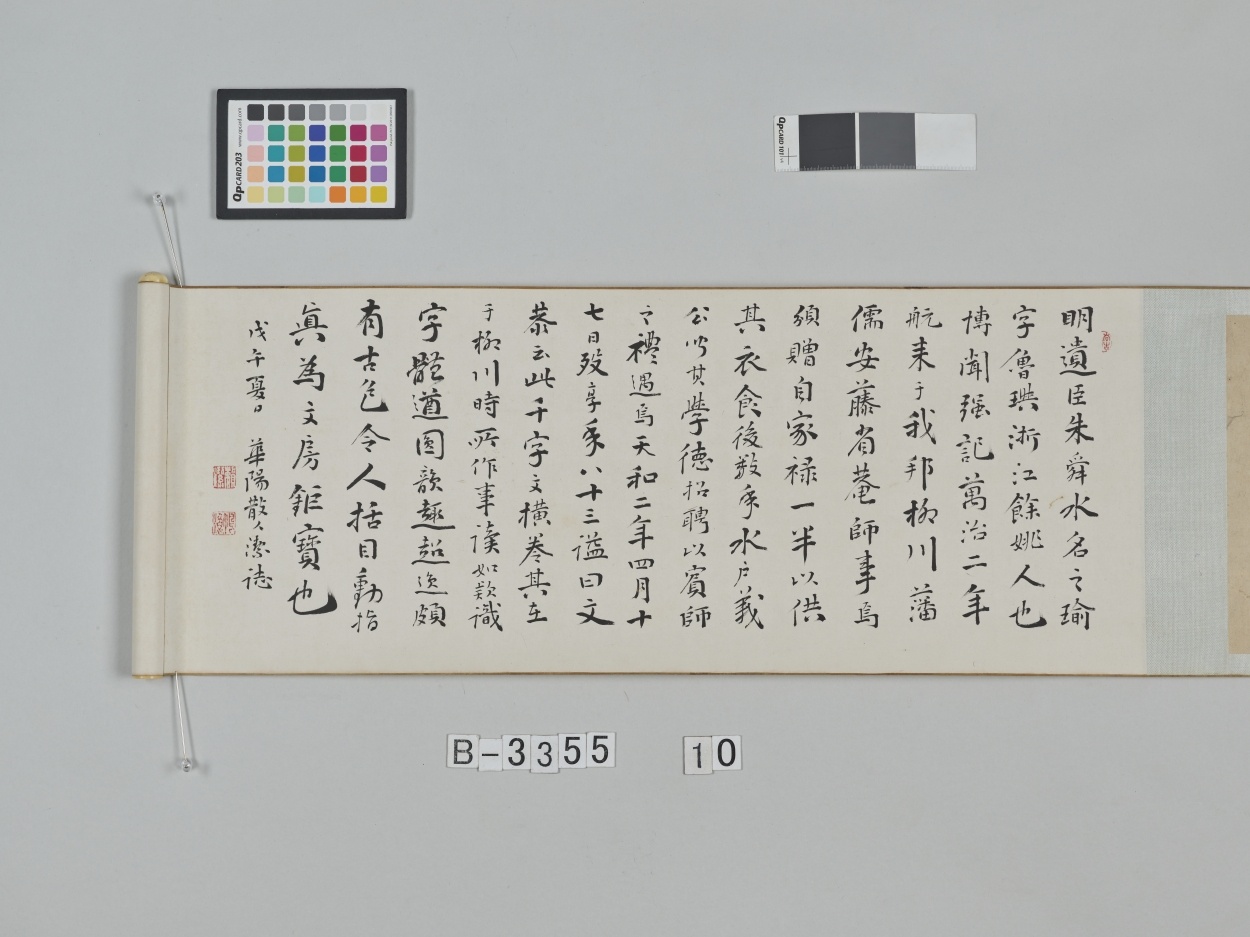 明遺臣朱舜水名之瑜
字魯璵浙江餘姚人也
博聞强記萬治二年
航来于我邦柳川藩
儒安藤省菴師事焉
頒贈自家禄一半以供
其衣食後数年水戸義
公以其學德招聘以賓師
之禮遇焉天和二年四月十
七日歿享年八十三謚曰文
恭云此千字文横巻其在
于柳川時所作事漢如款識
字體遒圓韻趣超逸頗
有古色令人括目動指
眞為文房鉅寶也
戊午夏日 華陽散人 誌
QpCARD 203
www.qpcard.com
QpCARD 101
B-3355 10